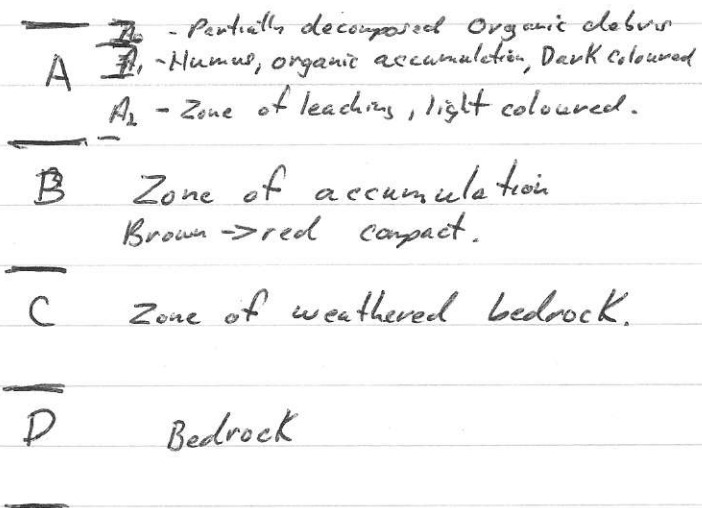 A₀ - Partially decomposed Organic debris
A A₁ - Humus, organic accumulation, Dark coloured
A₂ - Zone of leaching, light coloured.
B Zone of accumulation
Brown -> red compact.
C Zone of weathered bedrock.
D Bedrock